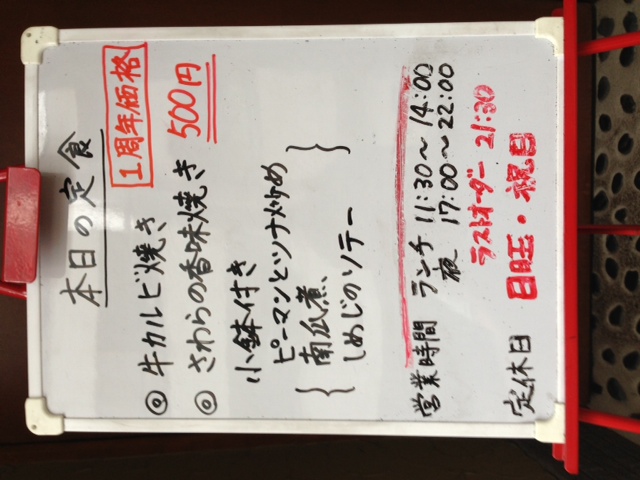 本日の定食
1周年価格
◎牛カルビ焼き 500円
◎さわらの香味焼き
小鉢付き
ピーマンとツナ炒め
南瓜煮、
しめじのソテー
営業時間 ランチ 11:30～14:00
夜 17:00～22:00
ラストオーダー 21:30
定休日 日曜・祝日